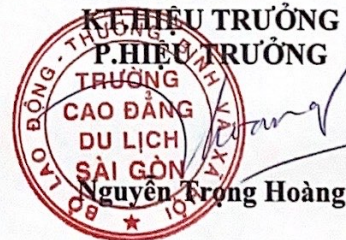 KT.HIỆU TRƯỞNG
P.HIỆU TRƯỞNG
BỘ LAO ĐỘNG - THƯƠNG BINH VÀ XÃ HỘI
TRƯỜNG
CAO ĐẲNG
DU LỊCH
SÀI GÒN
Nguyễn Trọng Hoàng